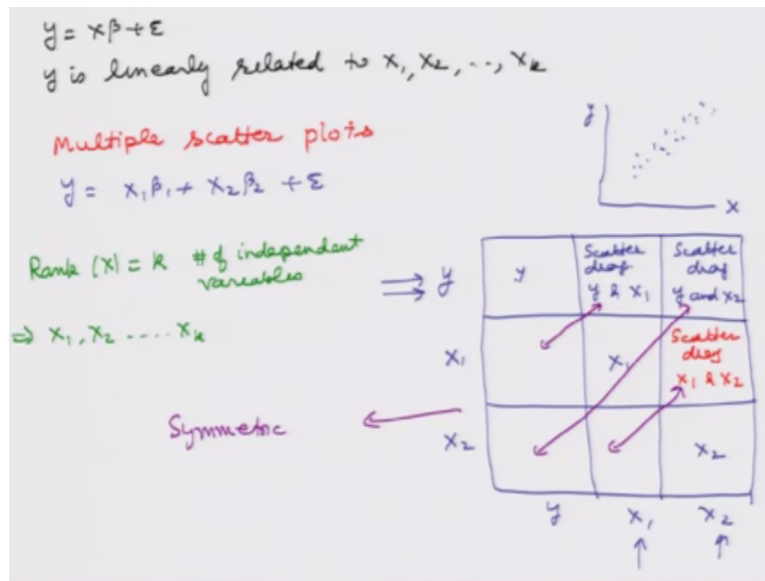 y = xβ + ε
y is linearly related to x₁, x₂, .., xₖ
Multiple scatter plots
y = x₁β₁ + x₂β₂ + ε
y
x
Rank (X) = k # of independent
variables
⇒ x₁, x₂ .... xₖ
Symmetric
⇒ y
y
Scatter
diag
y & x₁
Scatter
diag
y and x₂
x₁
x₁
Scatter
diag
x₁ & x₂
x₂
x₂
y x₁ x₂